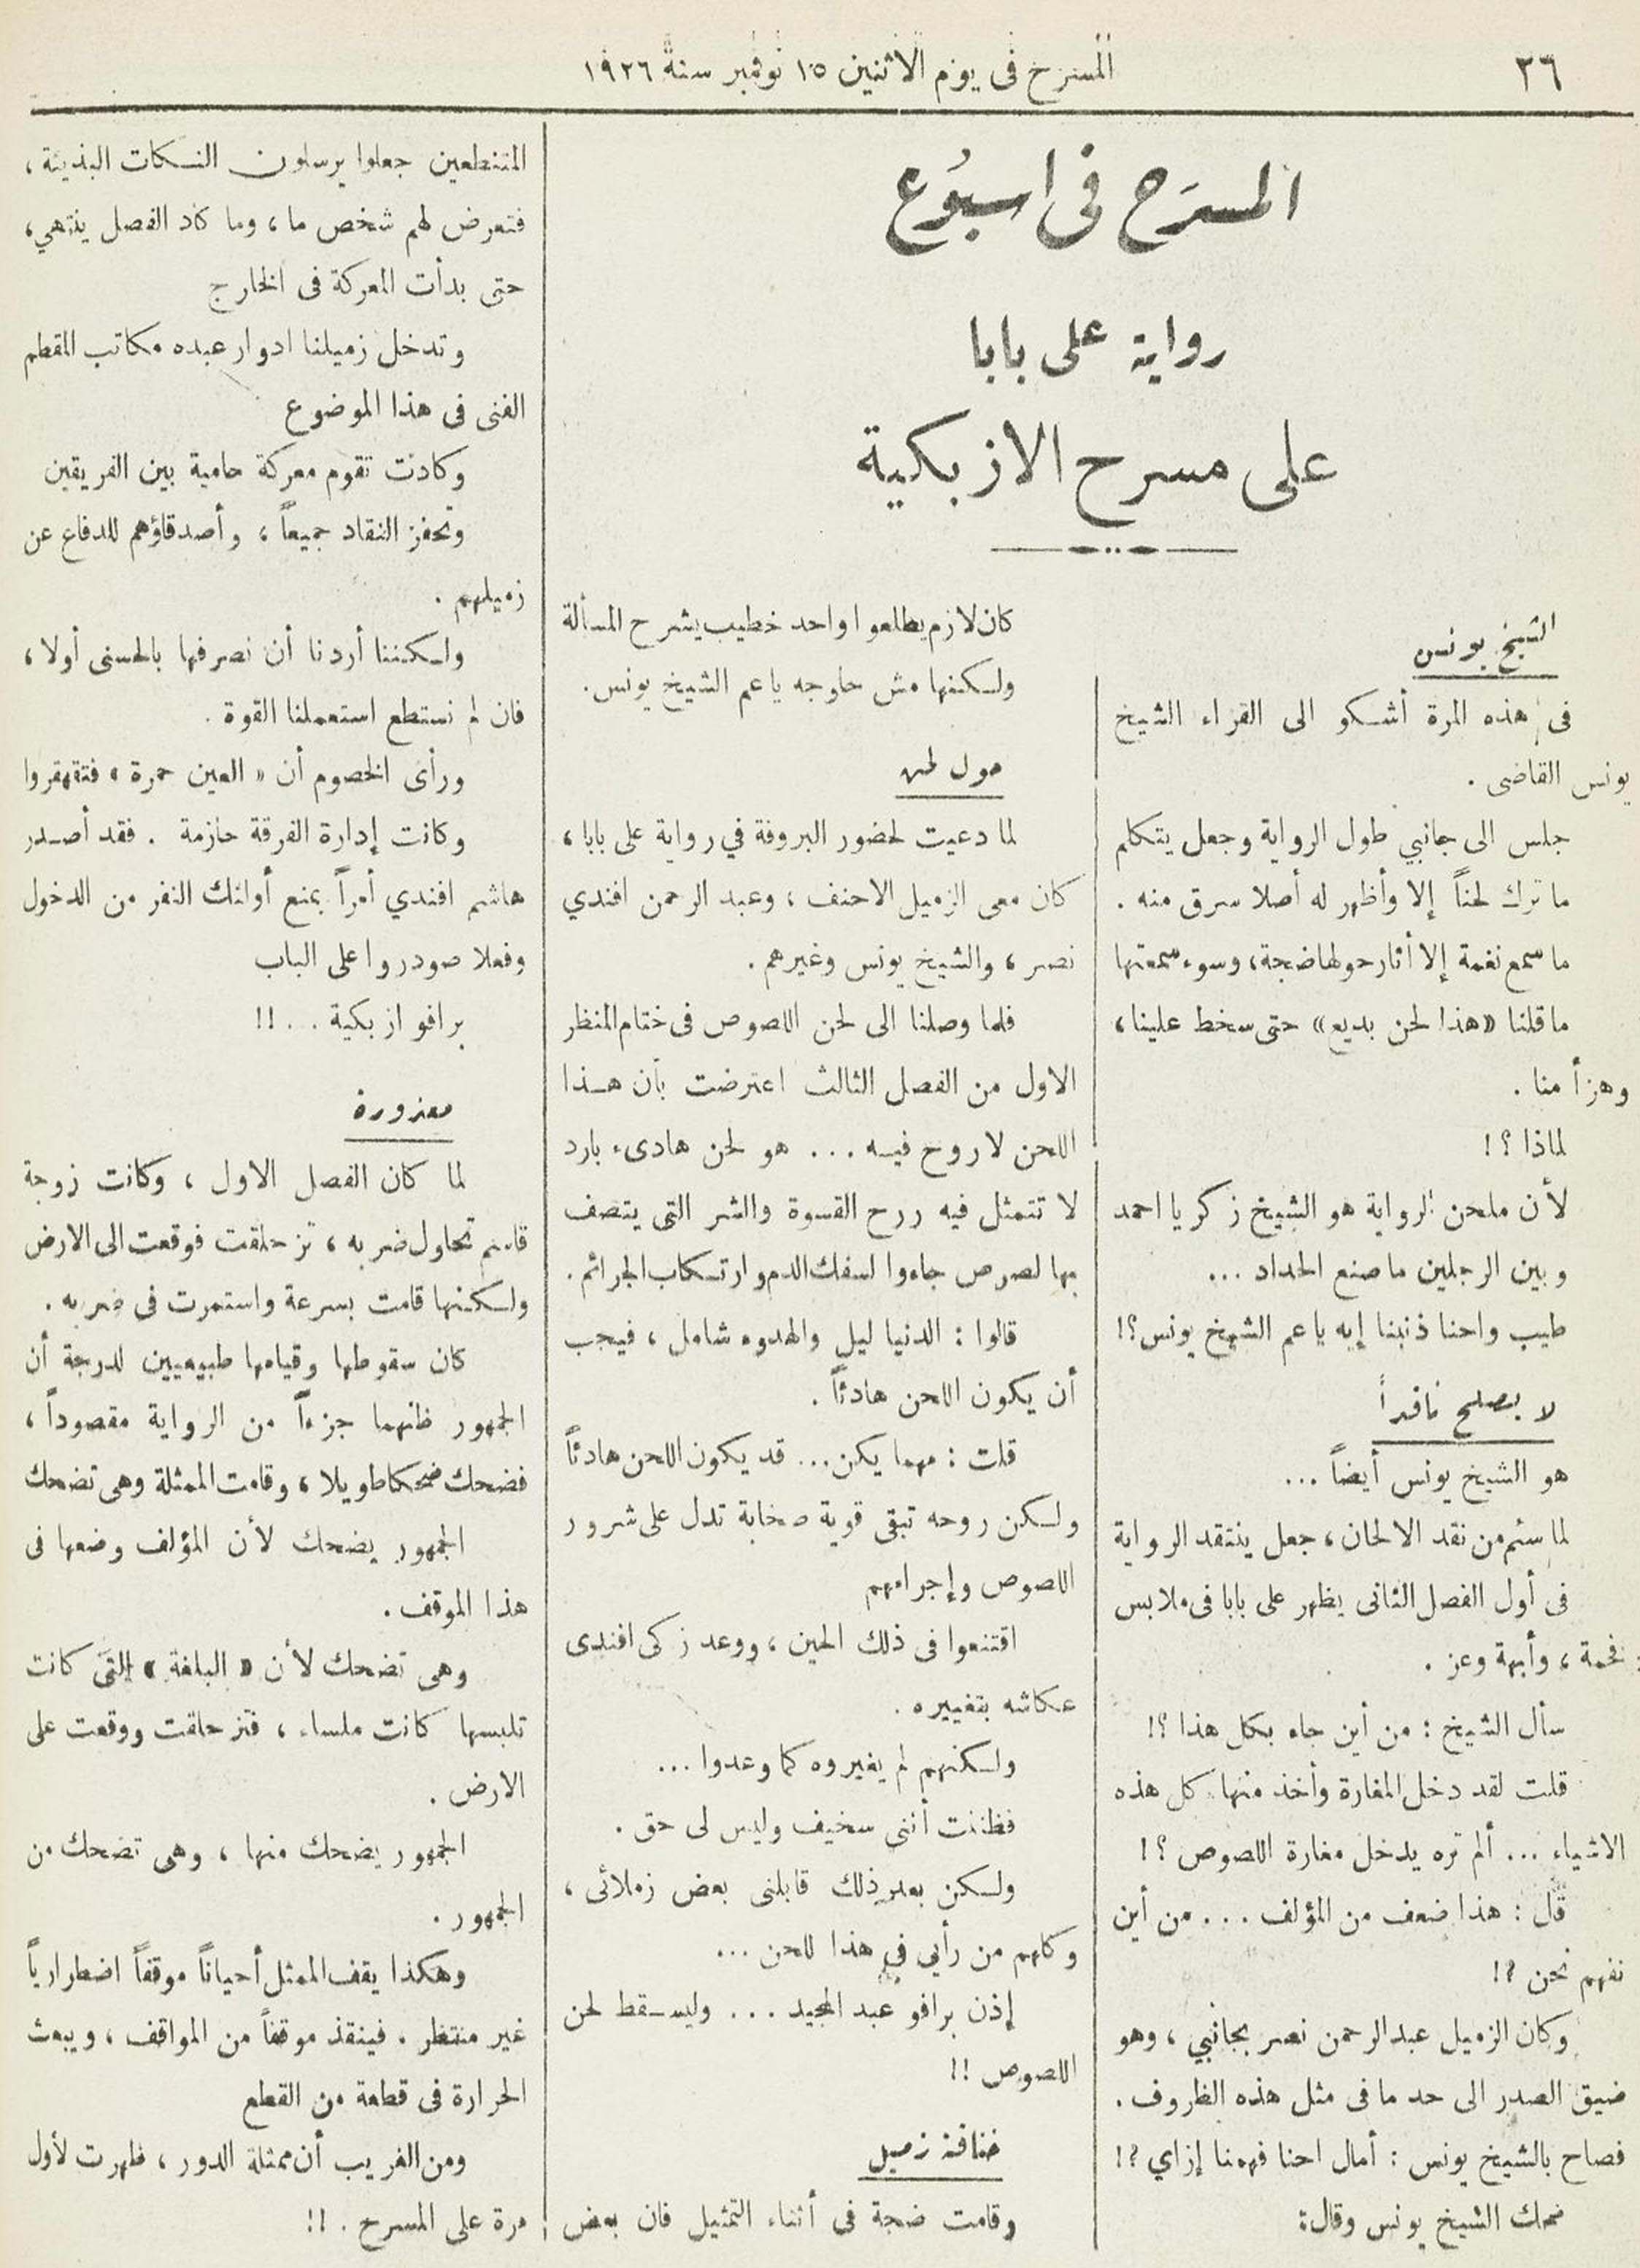 ٢٦
المسرح في يوم الاثنين ١٥ نوفمبر سنة ١٩٢٦
المسرح في اسبوع
رواية على بابا
على مسرح الازبكية
الشيخ يونس
فى هذه المرة أشكو الى القراء الشيخ
يونس القاضى .
جلس الى جانبي طول الرواية وجعل يتكلم
ما ترك لحناً إلا وأظهر له أصلا سرق منه .
ما سمع نغمة إلا أثار حولها ضجة، وسوء سمعتها
ما قلنا «هذا لحن بديع» حتى سخط علينا،
وهزأ منا .
لماذا ؟ !
لأن ملحن الرواية هو الشيخ زكريا احمد
وبين الرجلين ما صنع الحداد ...
طيب واحنا ذنبنا إيه ياعم الشيخ يونس؟!
لا يصلح ناقداً
هو الشيخ يونس أيضاً ...
لما سئم من نقد الالحان، جعل ينتقد الرواية
فى أول الفصل الثانى يظهر على بابا فى ملابس
فخمة ، وأبهة وعز .
سأل الشيخ : من أين جاء بكل هذا ؟!
قلت لقد دخل المغارة وأخذ منها كل هذه
الاشياء ... ألم تره يدخل مغارة اللصوص ؟ !
قال : هذا ضعف من المؤلف ... من أين
نفهم نحن ؟!
وكان الزميل عبد الرحمن نصر بجانبي ، وهو
ضيق الصدر الى حد ما فى مثل هذه الظروف .
فصاح بالشيخ يونس : أمال احنا فهمنا إزاي ؟!
ضحك الشيخ يونس وقال:
كان لازم يطلعوا واحد خطيب يشرح المسألة
ولكنها مش حاوجه ياعم الشيخ يونس.
حول لحن
لما دعيت لحضور البروفة في رواية على بابا ،
كان معى الزميل الاحنف ، وعبد الرحمن افندي
نصر ، والشيخ يونس وغيرهم .
فلما وصلنا الى لحن اللصوص فى ختام المنظر
الاول من الفصل الثالث اعترضت بأن هذا
اللحن لا روح فيه ... هو لحن هادىء بارد
لا تتمثل فيه روح القسوة والشر التى يتصف
بها لصوص جاءوا لسفك الدم وارتكاب الجرائم .
قالوا : الدنيا ليل والهدوء شامل ، فيجب
أن يكون اللحن هادئاً .
قلت : مهما يكن... قد يكون اللحن هادئاً
ولكن روحه تبقى قوية صخابة تدل على شرور
اللصوص وإجرامهم
اقتنعوا فى ذلك الحين ، ووعد زكى افندى
عكاشه بتغييره .
ولكنهم لم يغيروه كما وعدوا ...
فظننت أننى سخيف وليس لى حق .
ولكن بعد ذلك قابلنى بعض زملائى ،
وكلهم من رأيي في هذا للحن ...
إذن برافو عبد المجيد ... وليسقط لحن
اللصوص !!
خناقة زميل
وقامت ضجة فى أثناء التمثيل فان بعض
المتنطعين جعلوا يرسلون النكات البذيئة ،
فتعرض لهم شخص ما ، وما كاد الفصل ينتهي،
حتى بدأت المعركة فى الخارج
وتدخل زميلنا ادوار عبده مكاتب المقطم
الفنى فى هذا الموضوع
وكادت تقوم معركة حامية بين الفريقين
وتحفز النقاد جميعاً ، وأصدقاؤهم للدفاع عن
زميلهم .
ولكننا أردنا أن نصرفها بالحسنى أولا ،
فان لم نستطع استعملنا القوة .
ورأى الخصوم أن « العين حمرة » فتقهقروا
وكانت إدارة الفرقة حازمة . فقد أصدر
هاشم افندي أمراً بمنع أولئك النفر من الدخول
وفعلا صودروا على الباب
برافو ازبكية . . !!
معزورة
لما كان الفصل الاول ، وكانت زوجة
قاسم تحاول ضربه ، تزحلقت فوقعت الى الارض
ولكنها قامت بسرعة واستمرت فى ضربه .
كان سقوطها وقيامها طبيعيين لدرجة أن
الجمهور ظنهما جزءاً من الرواية مقصوداً ،
فضحك ضحكا طويلا ، وقامت الممثلة وهى تضحك
الجمهور يضحك لأن المؤلف وضعها فى
هذا الموقف .
وهى تضحك لأن « البلغة » التى كانت
تلبسها كانت ملساء ، فتزحلقت ووقعت على
الارض .
الجمهور يضحك منها ، وهى تضحك من
الجمهور .
وهكذا يقف الممثل أحياناً موقفاً اضطرارياً
غير منتظر . فينقذ موقفاً من المواقف ، ويبعث
الحرارة فى قطعة من القطع
ومن الغريب أن ممثلة الدور ، ظهرت لأول
مرة على المسرح . !!